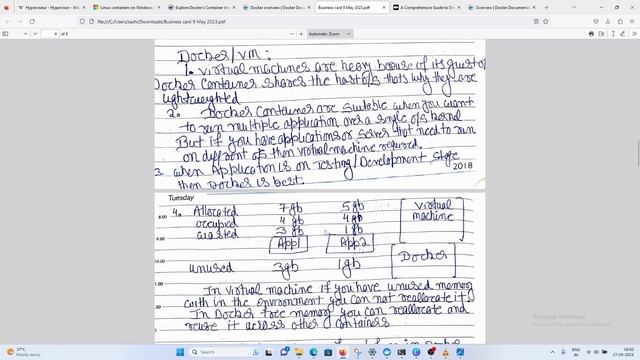 Hypervisor - Hypervisor - W
Linux containers on Windows
Explore Docker's Container Ima
Docker overview | Docker Docu
Business card 9 May 2023.pdf
A Comprehensive Guide to Do
Overview | Docker Documentati
File C:/Users/sachi/Downloads/Business card 9 May 2023.pdf
4 of 6
Automatic Zoom
Docker/vm:
1. virtual machines are heavy becuse of its guest os
Docker container shares the host o/s thats why they are
lightweighted
2. Docker Container are suitable when you want
to run multiple application over a single o/s kernel
But if you have applications or server that need to run
on diffront o/s then virtual machine required.
3. when Application is on Testing/Development stage
then Docker is best.
2018
Tuesday
4. Allocated 7gb 5gb virtual
8.00 occupied 4gb 4gb machine
wasted 3gb 1gb
9.00 App1 App2
unused 3gb 1gb Docker
In virtual machine if you have unused memory
with in the environment you can not reallocate it
In Docker free memory you can reallocate and
reuse it across other containers
Activate Windows
Go to settings to activate Windows.
37°C
Mostly sunny
Search
ENG
IN
18:02
17-05-2023